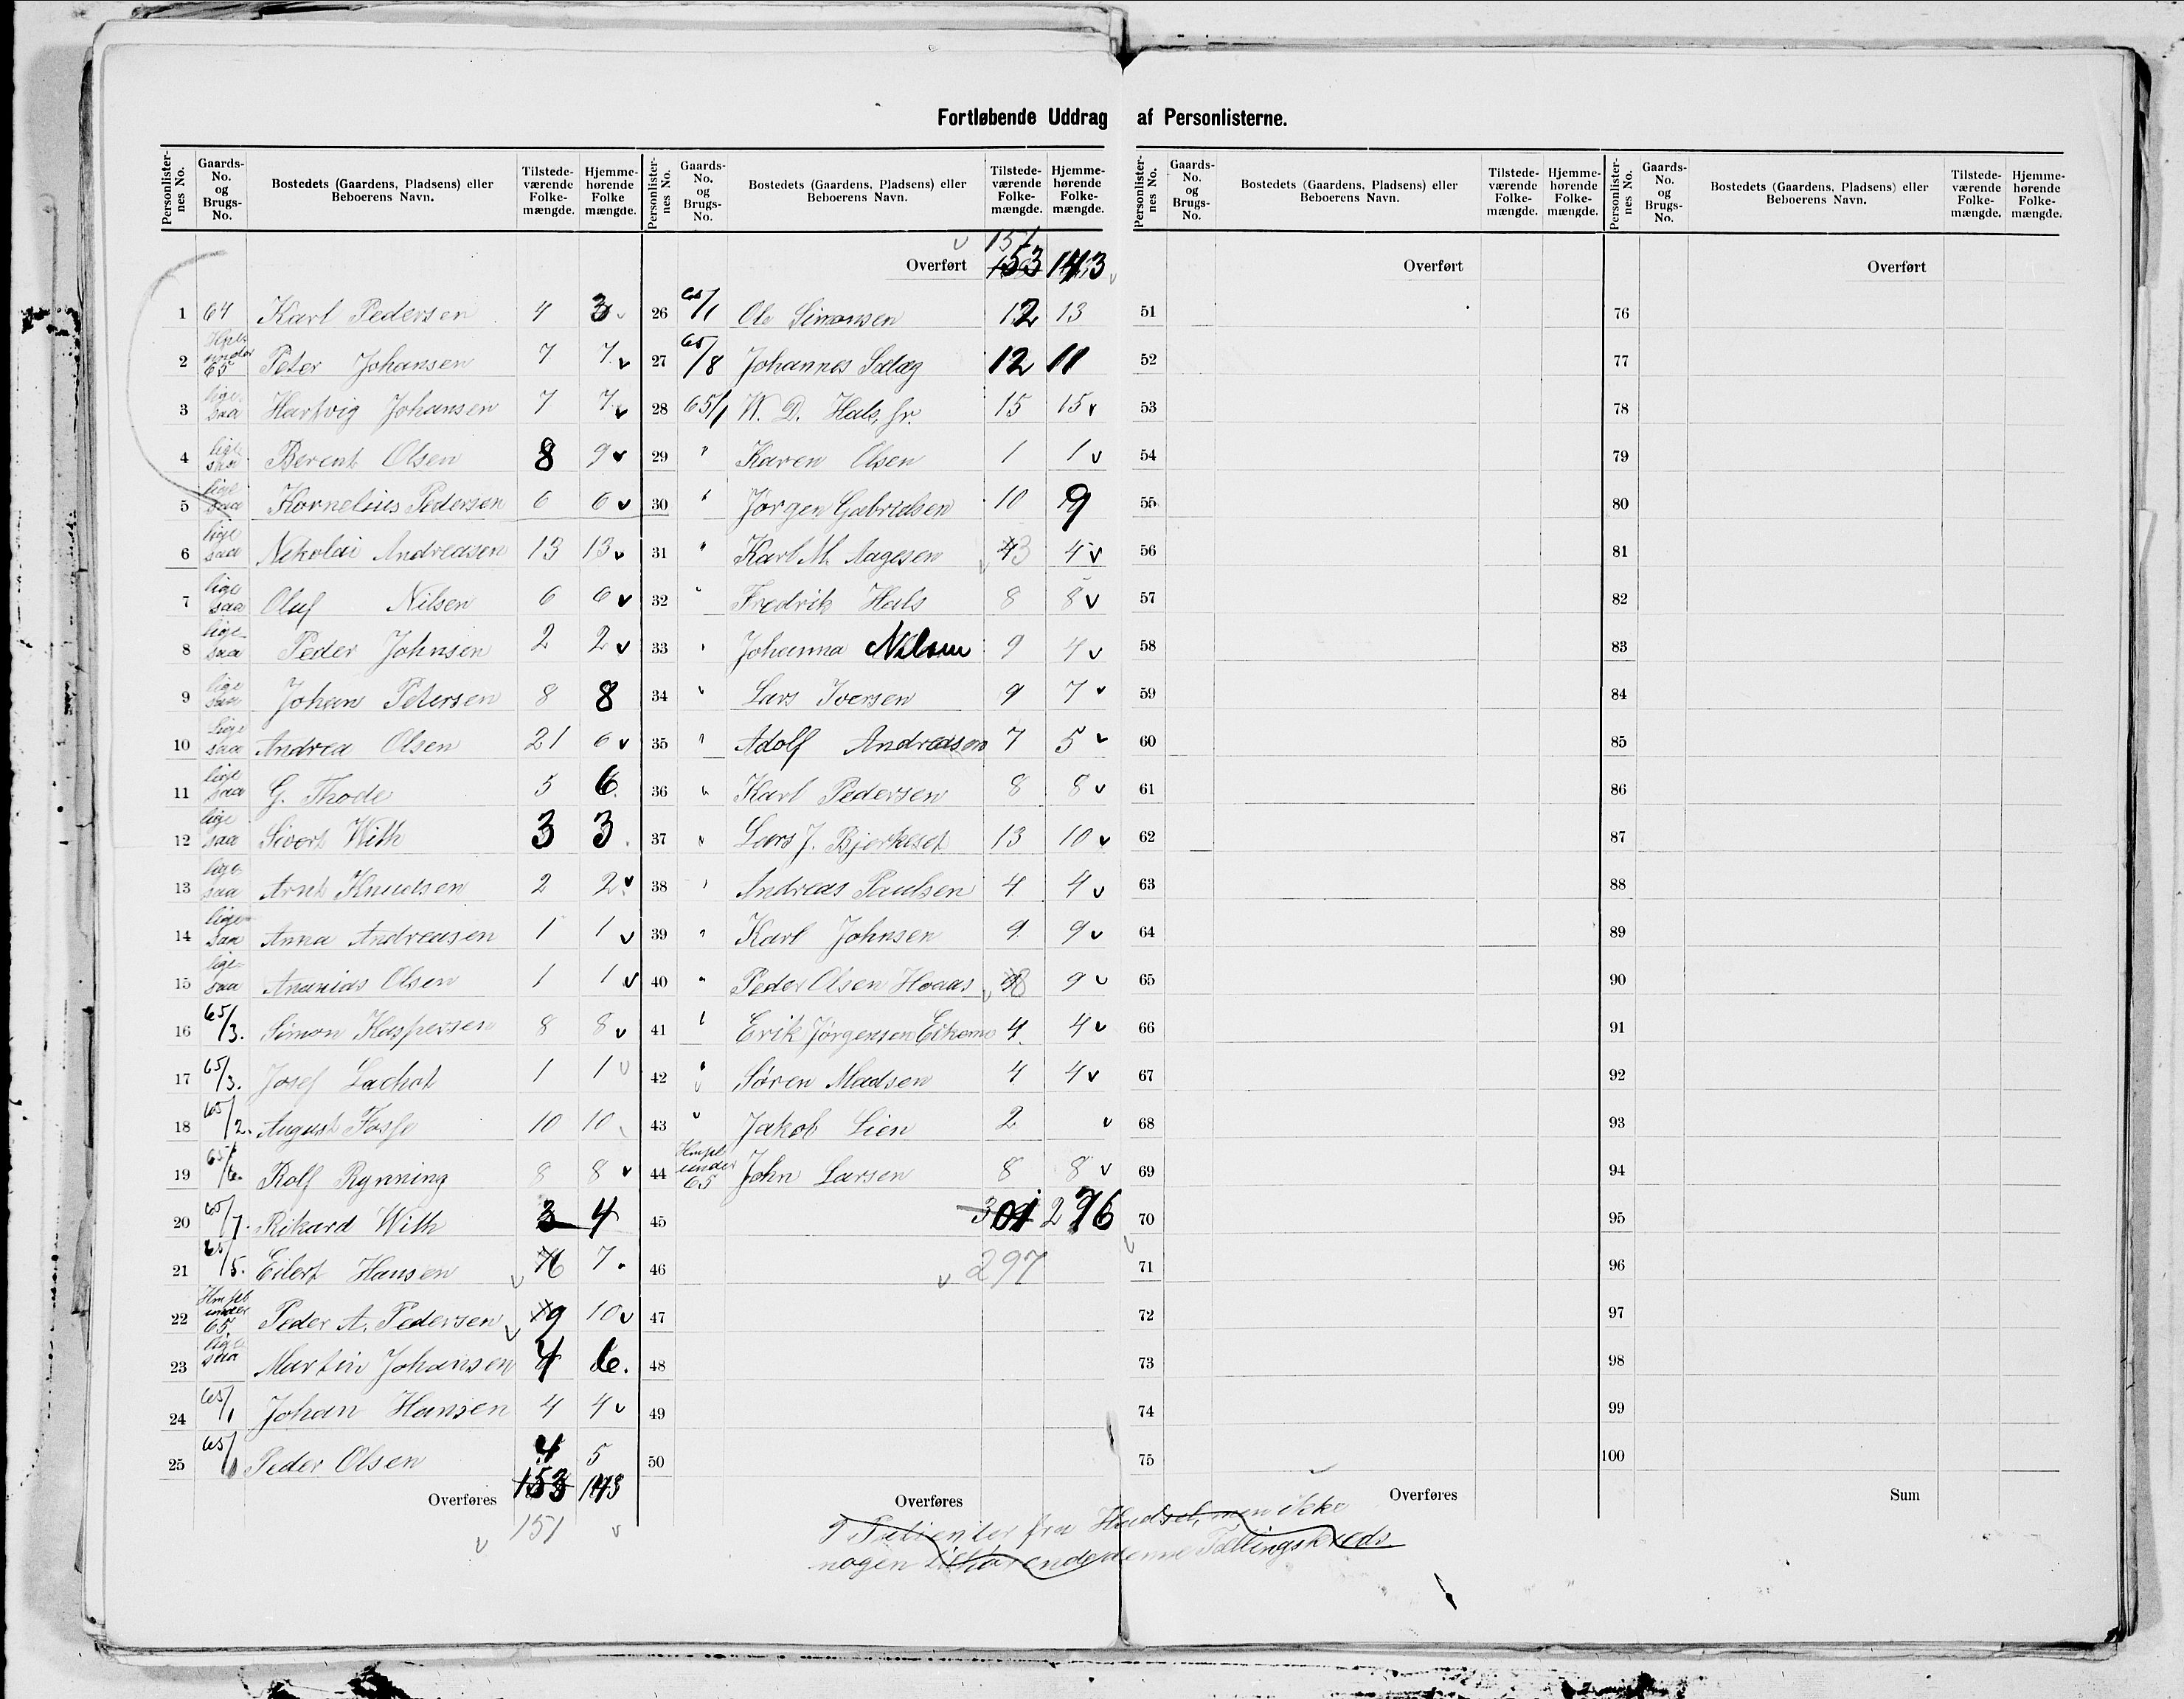 Fortløbende Uddrag af Personlisterne.
Personlister-nes No. Gaards-No. og Brugs-No. Bostedets (Gaardens, Pladsens) eller Beboerens Navn. Tilstede-værende Folke-mængde. Hjemme-hørende Folke mængde.
1 64 Karl Pedersen 4 3
2 under 65 Peter Johansen 7 7 v
3 lige saa Hartvig Johansen 7 7 v
4 lige saa Berent Olsen 8 9 v
5 lige saa Kornelius Pedersen 6 6 v
6 lige saa Nikolai Andreasen 13 13 v
7 lige saa Oluf Nilsen 6 6 v
8 lige saa Peder Johnsen 2 2 v
9 lige saa Johan Petersen 8 8
10 Lige saa Andrea Olsen 21 6 v
11 lige saa G. Thode 5 6
12 lige saa Sivert With 3 3
13 lige saa Arnt Knutsen 2 2 v
14 lige saa Anna Andreasen 1 1 v
15 lige saa Ananias Olsen 1 1 v
16 65/3. Simon Kaspersen 8 8 v
17 65/3. Josef Lachot 1 1 v
18 65/2. August Fosse 10 10
19 65/6. Rolf Rynning 8 8 v
20 65/7. Rikard With 3 4
21 65/5. Eilert Hansen 6 7
22 Hmpl under 65 Peder A. Pedersen 9 10 v
23 lige saa Martin Johansen 4 6.
24 65/1 Johan Hansen 4 4 v
25 65/1 Peder Olsen 4 5
Overføres 153 143
v 151 v
Personlister-nes No. Gaards-No. og Brugs-No. Bostedets (Gaardens, Pladsens) eller Beboerens Navn. Tilstede-værende Folke-mængde. Hjemme-hørende Folke-mængde.
v 151
Overført 153 143
26 65/1 Ole Simonsen 12 13
27 65/8 Johannes Selæg 12 11
28 65/1 W. D. Hals, jr. 15 15 v
29 " Karen Olsen 1 1 v
30 " Jørgen Gabrielsen 10 9
31 " Karl M. Aagesen 3 4 v
32 " Fredrik Hals 8 8 v
33 " Johanna Nilsen 9 4 v
34 " Lars Iversen 9 7 v
35 " Adolf Andreasen 7 5 v
36 " Karl Pedersen 8 8 v
37 " Lars J. Bjerkeset 13 10 v
38 " Andreas Paulsen 4 4 v
39 " Karl Johnsen 9 9 v
40 " Peder Olsen Hoaas 8 9 v
41 " Erik Jørgensen Eikemo 4 4 v
42 " Søren Madsen 4 4 v
43 " Jakob Lien 2 v
44 Hmpl under 65 John Larsen 8 8 v
45 301 276
46 v 297
47
48
49
50
Overføres
9 Patienter fra Hadsel, men ikke
nogen tilhørende denne Tællingskreds
Personlister-nes No. Gaards-No. og Brugs-No. Bostedets (Gaardens, Pladsens) eller Beboerens Navn. Tilstede-værende Folke-mængde. Hjemme-hørende Folke-mængde.
Overført
51
52
53
54
55
56
57
58
59
60
61
62
63
64
65
66
67
68
69
70
71
72
73
74
75
Overføres
Personlister-nes No. Gaards-No. og Brugs-No. Bostedets (Gaardens, Pladsens) eller Beboerens Navn. Tilstede-værende Folke-mængde. Hjemme-hørende Folke-mængde.
Overført
76
77
78
79
80
81
82
83
84
85
86
87
88
89
90
91
92
93
94
95
96
97
98
99
100
Sum